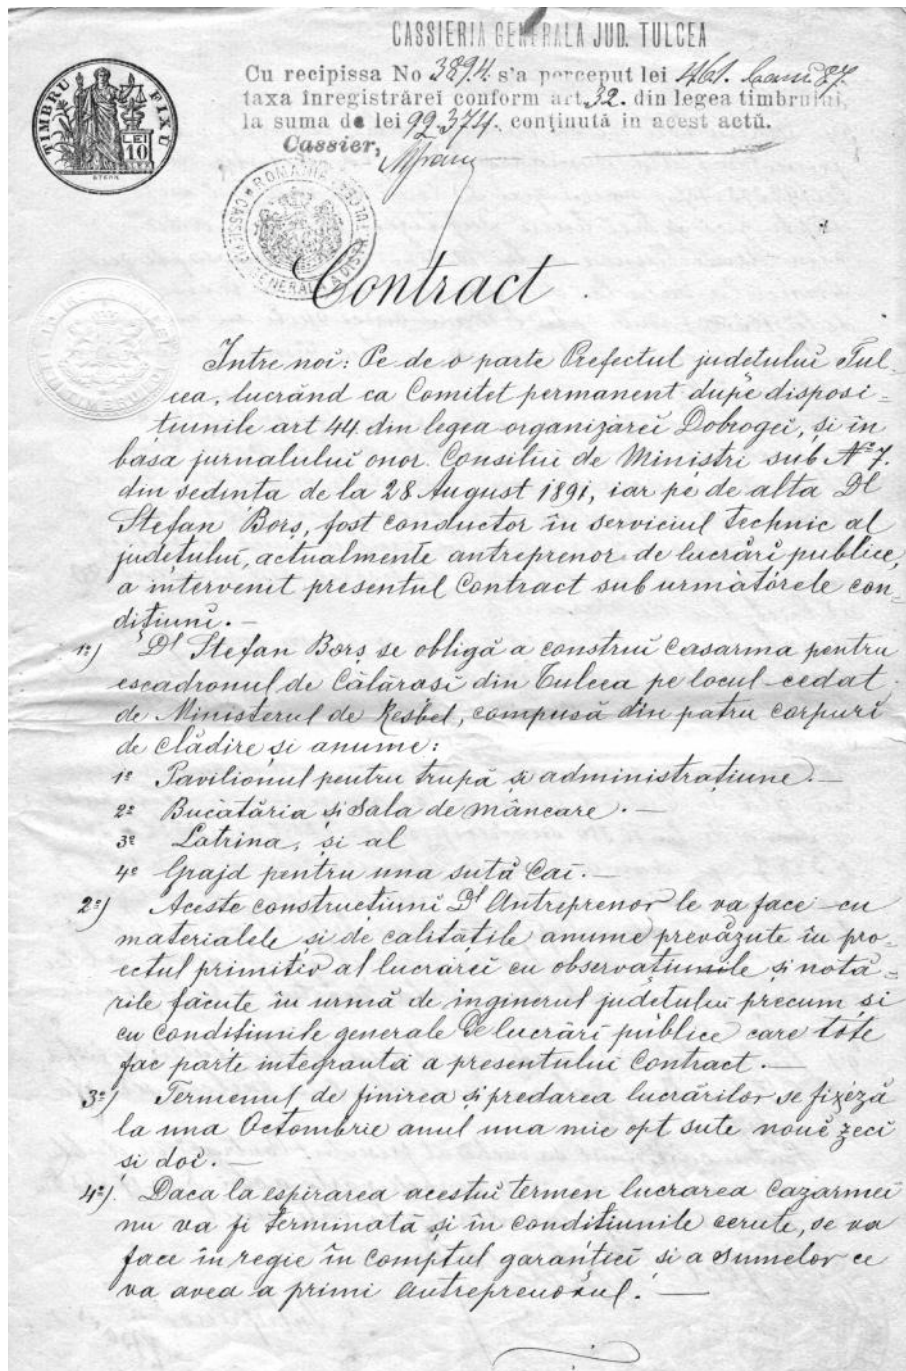 CASSIERIA GENERALA JUD. TULCEA
Cu recipissa No 3894. s'a perceput lei 461. bani 87
taxa înregistrărei conform art. 32. din legea timbrului,
la suma de lei 92.374. conţinută in acest actŭ.
Cassier,
TIMBRU FIXU
LEI
10
ROMANIA
Contract.
Intre noi: Pe de o parte Prefectul judetului Tul-
cea, lucrând ca Comitet permanent dupe disposi-
tiunile art 44 din legea organizărei Dobrogei, și in
basa jurnalului onor. Consiliu de Ministri sub No 7.
din ședința de la 28 August 1891, iar pe de alta Dl
Stefan Borș, fost conductor în serviciul technic al
județului, actualmente antreprenor de lucrări publice,
a intervenit presentul Contract sub următórele con-
dițiuni. —
1o) Dl Stefan Borș se obligă a construi casarma pentru
escadronul de Călărași din Tulcea pe locul cedat
de Ministerul de Resbel, compusă din patru corpuri
de clădire și anume:
1o Pavilionul pentru trupă și administrațiune. —
2o Bucătăria și Sala de mâncare. —
3o Latrina, și al
4o Grajd pentru una sută Cai. —
2o) Aceste construcțiuni Dl Antreprenor le va face cu
materialele si de calitățile anume prevăzute în pro-
ectul primitiv al lucrărei cu observațiunile și notă-
rile făcute în urmă de inginerul județului precum și
cu condițiunile generale de lucrări publice care tóte
fac parte integrantă a presentului Contract. —
3o) Termenul de finirea și predarea lucrărilor se fixéză
la una Octombrie anul una mie opt sute noué zeci
și doi. —
4o). Daca la espirarea acestui termen lucrarea Cazarmei
nu va fi terminată și în condițiunile cerute, se va
face în regie în comptul garanției si a sumelor ce
va avea a primi Antreprenorul. —